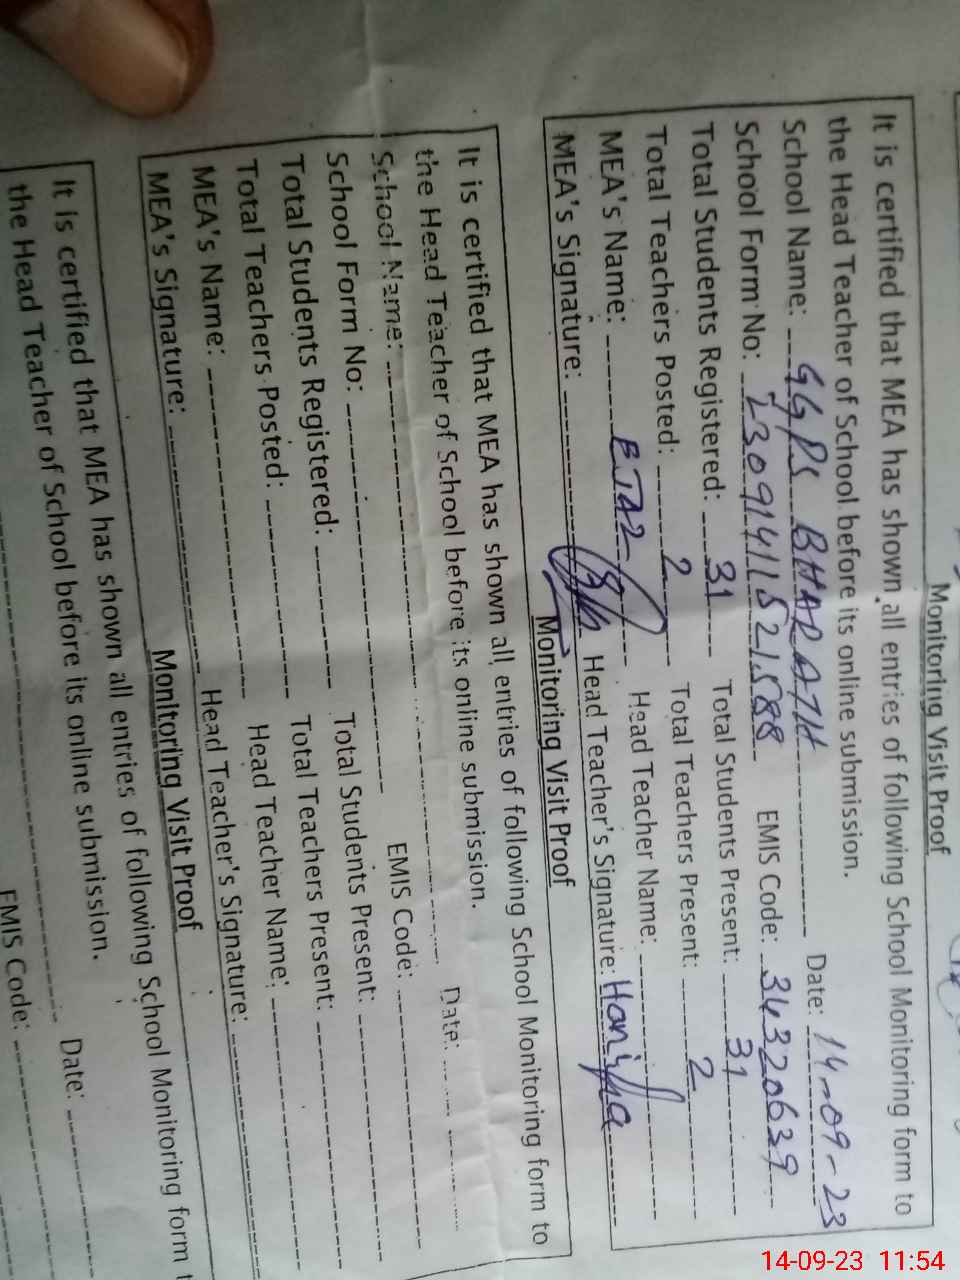 Monitoring Visit Proof
It is certified that MEA has shown all entries of following School Monitoring form to
the Head Teacher of School before its online submission.
School Name: GGPS BHARATH Date: 14-09-23
School Form No: 23091411521588 EMIS Code: 34320639
Total Students Registered: 31 Total Students Present: 31
Total Teachers Posted: 2 Total Teachers Present: 2
MEA's Name: Head Teacher Name:
MEA's Signature: Head Teacher's Signature:
Monitoring Visit Proof
It is certified that MEA has shown all entries of following School Monitoring form to
the Head Teacher of School before its online submission.
School Name: Date:
School Form No: EMIS Code:
Total Students Registered: Total Students Present:
Total Teachers Posted: Total Teachers Present:
MEA's Name: Head Teacher Name:
MEA's Signature: Head Teacher's Signature:
Monitoring Visit Proof
It is certified that MEA has shown all entries of following School Monitoring form
the Head Teacher of School before its online submission.
Date:
EMIS Code:
14-09-23 11:54